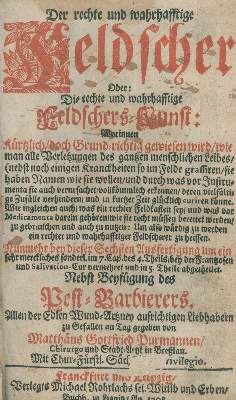 Der rechte und wahrhafftige
Feldscher
Oder:
Die rechte und wahrhafftige
Feldschers-Kunst:
Worinnen
Kürtzlich/ doch Grund-richtig gewiesen wird/ wie
man alle Verletzungen des gantzen menschlichen Leibes/
(nebst noch einigen Kranckheiten so im Felde grassiren/ sie
haben Namen wie sie wollen/ und durch was vor Instru-
menta sie auch verursachet/ vollkömmlich erkennen/ deren vielfälti-
ge Zufälle verhindern/ und in kurtzer Zeit glücklich curiren könne.
Wie ingleichen auch was ein rechter Feldkasten sey/ und was vor
Medicamenta darein gehören/ wie sie recht müssen bereitet werden/
zu gebrauchen und auch zu nutzen: Um also würdig zu werden
ein rechter und wahrhafftiger Feldscherer zu heissen.
Nunmehr bey dieser Sechsten Ausfertigung um ein
sehr merckliches sonderl. im 7. Cap. des 4. Theils/ bey der Frantzosen
und Salivation-Cur vermehret und in 5. Theile abgetheilet.
Nebst Beyfügung des
Pest-Barbierers.
Allen der Edlen Wund-Artzney aufrichtigen Liebhabern
zu Gefallen an Tag gegeben von
Matthäus Gottfried Purmannen/
Chirurgo und Stadt-Artzt in Breßlau.
Mit Chur-Fürstl. Säch vilegio.
Franckfurt und Leipzig/
Verlegts Michael Rohrlachs sel. Wittib und Erben/
Buchh. in Liegnitz An.